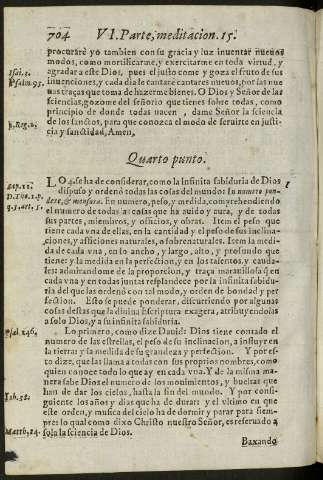 704 VI. Parte, meditacion. 15.
procuraré yo tambien con su gracia y luz inuentar nueuos
modos, como mortificarme, y exercitarme en toda virtud, y
agradar a este Dios, pues el justo come y goza el fruto de sus
inuenciones, y cada dia le cantaré cantares nueuos, por las nue
uas traças que toma de hazerme bienes. O Dios y Señor de las
sciencias, gozome del señorio que tienes sobre todas, como
principio de donde todas nacen, dame Señor la sciencia
de los sanctos, para que conozca el modo de seruirte en justi-
cia y sanctidad, Amen.
Isai. 3.
Psalm. 95.
Quarto punto.
LO 4. se ha de considerar, como la infinita sabiduria de Dios
dispuso y ordenó todas las cosas del mundo: En numero pon-
dere, & mensura. En numero, peso, y medida, comprehendiendo
el numero de todas las cosas que ha auido y aura, y de todas
sus partes, miembros, y oficios, y obras. Item el peso que
tiene cada vna de ellas, en la cantidad y el peso de sus inclina-
ciones, y afficiones naturales, o sobrenaturales. Item la medi-
da de cada vna, en lo ancho, y largo, alto, y profundo que
tiene: y la medida en la perfeccion, y en los talentos, y cauda-
les: admirandome de la proporcion, y traça marauillosa q̃ en
cada vna y en todas juntas resplandece por la infinita sabidu-
ria del que las ordenó con tal modo, y orden de bondad y per
fection. Esto se puede ponderar, discurriendo por algunas
cosas destas que la diuina Escriptura exagera, atribuyendolas
a solo Dios, y a su infinita sabiduria.
Sap. 11.
Lo primero, como dize Dauid: Dios tiene contado el
numero de las estrellas, el peso de su inclinacion, a influyr en
la tierra: y la medida de su grandeza y perfection. Y por es-
to dize, que las llama a todas con sus propios nombres, como
quien conoce todo lo que ay en cada vna. Y de la misma ma
nera sabe Dios el numero de los mouimientos, y bueltas que
han de dar los cielos, hasta la fin del mundo. Y por consi-
guiente los años y dias que ha de durar: y el vltimo en que
este orden, y musica del cielo ha de dormir y parar para siem-
pre: lo qual como dixo Christo nuestro Señor, es reseruado a
sola la sciencia de Dios.
Psal. 146.
Iob. 38.
Matth. 24.
Baxando